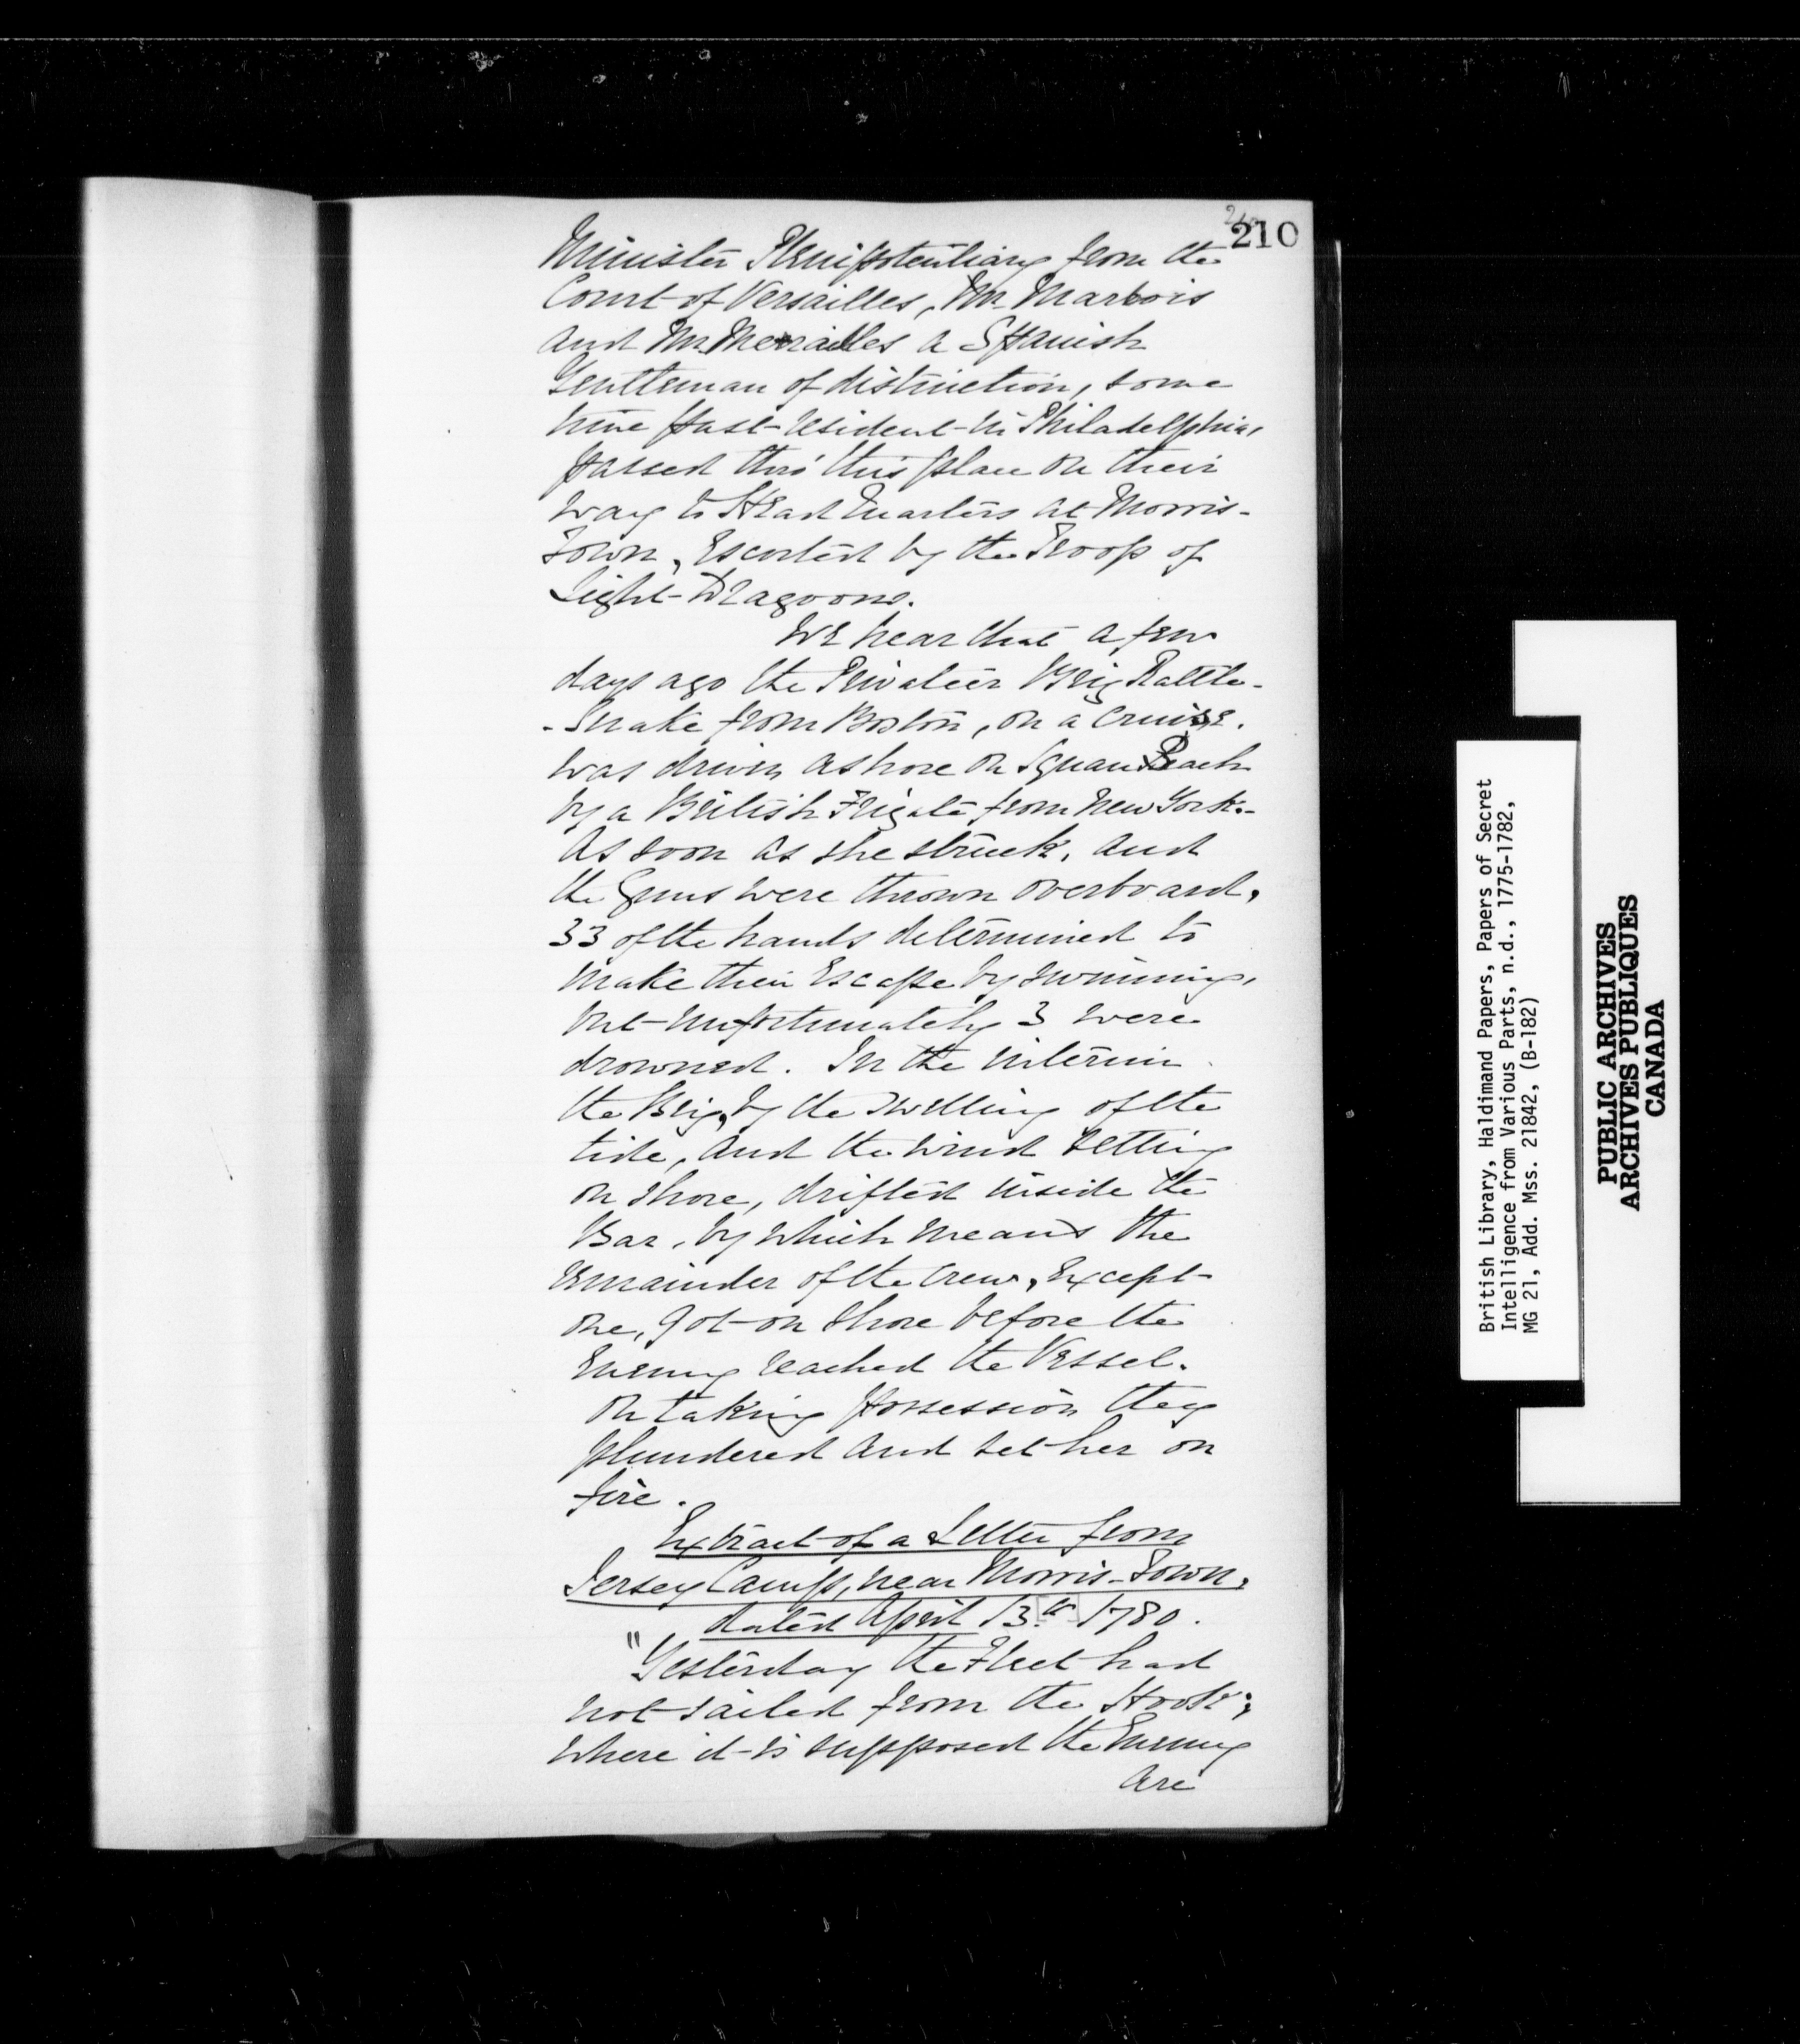 210
Minister Plenipotentiary from the
Court of Versailles, Mr. Marbois
and Mr. Merrailles a Spanish
Gentleman of distinction, some
time past resident in Philadelphia,
passed thro' this place on their
way to Head Quarters at Morris-
Town, Escorted by the Troop of
Light-Dragoons.
We hear that a few
days ago the Privateer Brig Rattle-
-Snake from Boston, on a Cruise.
was driven ashore on Squan Beach
by a British Frigate from New York.-
As soon as she struck, and
the Guns were thrown overboard,
33 of the hands determined to
make their Escape by swimming,
but unfortunately 3 were
drowned. In the interim
the Brig, by the swelling of the
tide, and the wind setting
on shore, drifted inside the
Bar, by which means the
remainder of the Crew, Except
one, got on shore before the
Enemy reached the Vessel.
On taking possession they
plundered and set her on
fire.
Extract of a Letter from
Jersey Camp, near Morris-Town,
dated April 13th 1780.
"Yesterday the Fleet had
not sailed from the Hook;
where it is supposed the Enemy
are
British Library, Haldimand Papers, Papers of Secret
Intelligence from Various Parts, n.d., 1775-1782,
MG 21, Add. Mss. 21842, (B-182)
PUBLIC ARCHIVES
ARCHIVES PUBLIQUES
CANADA